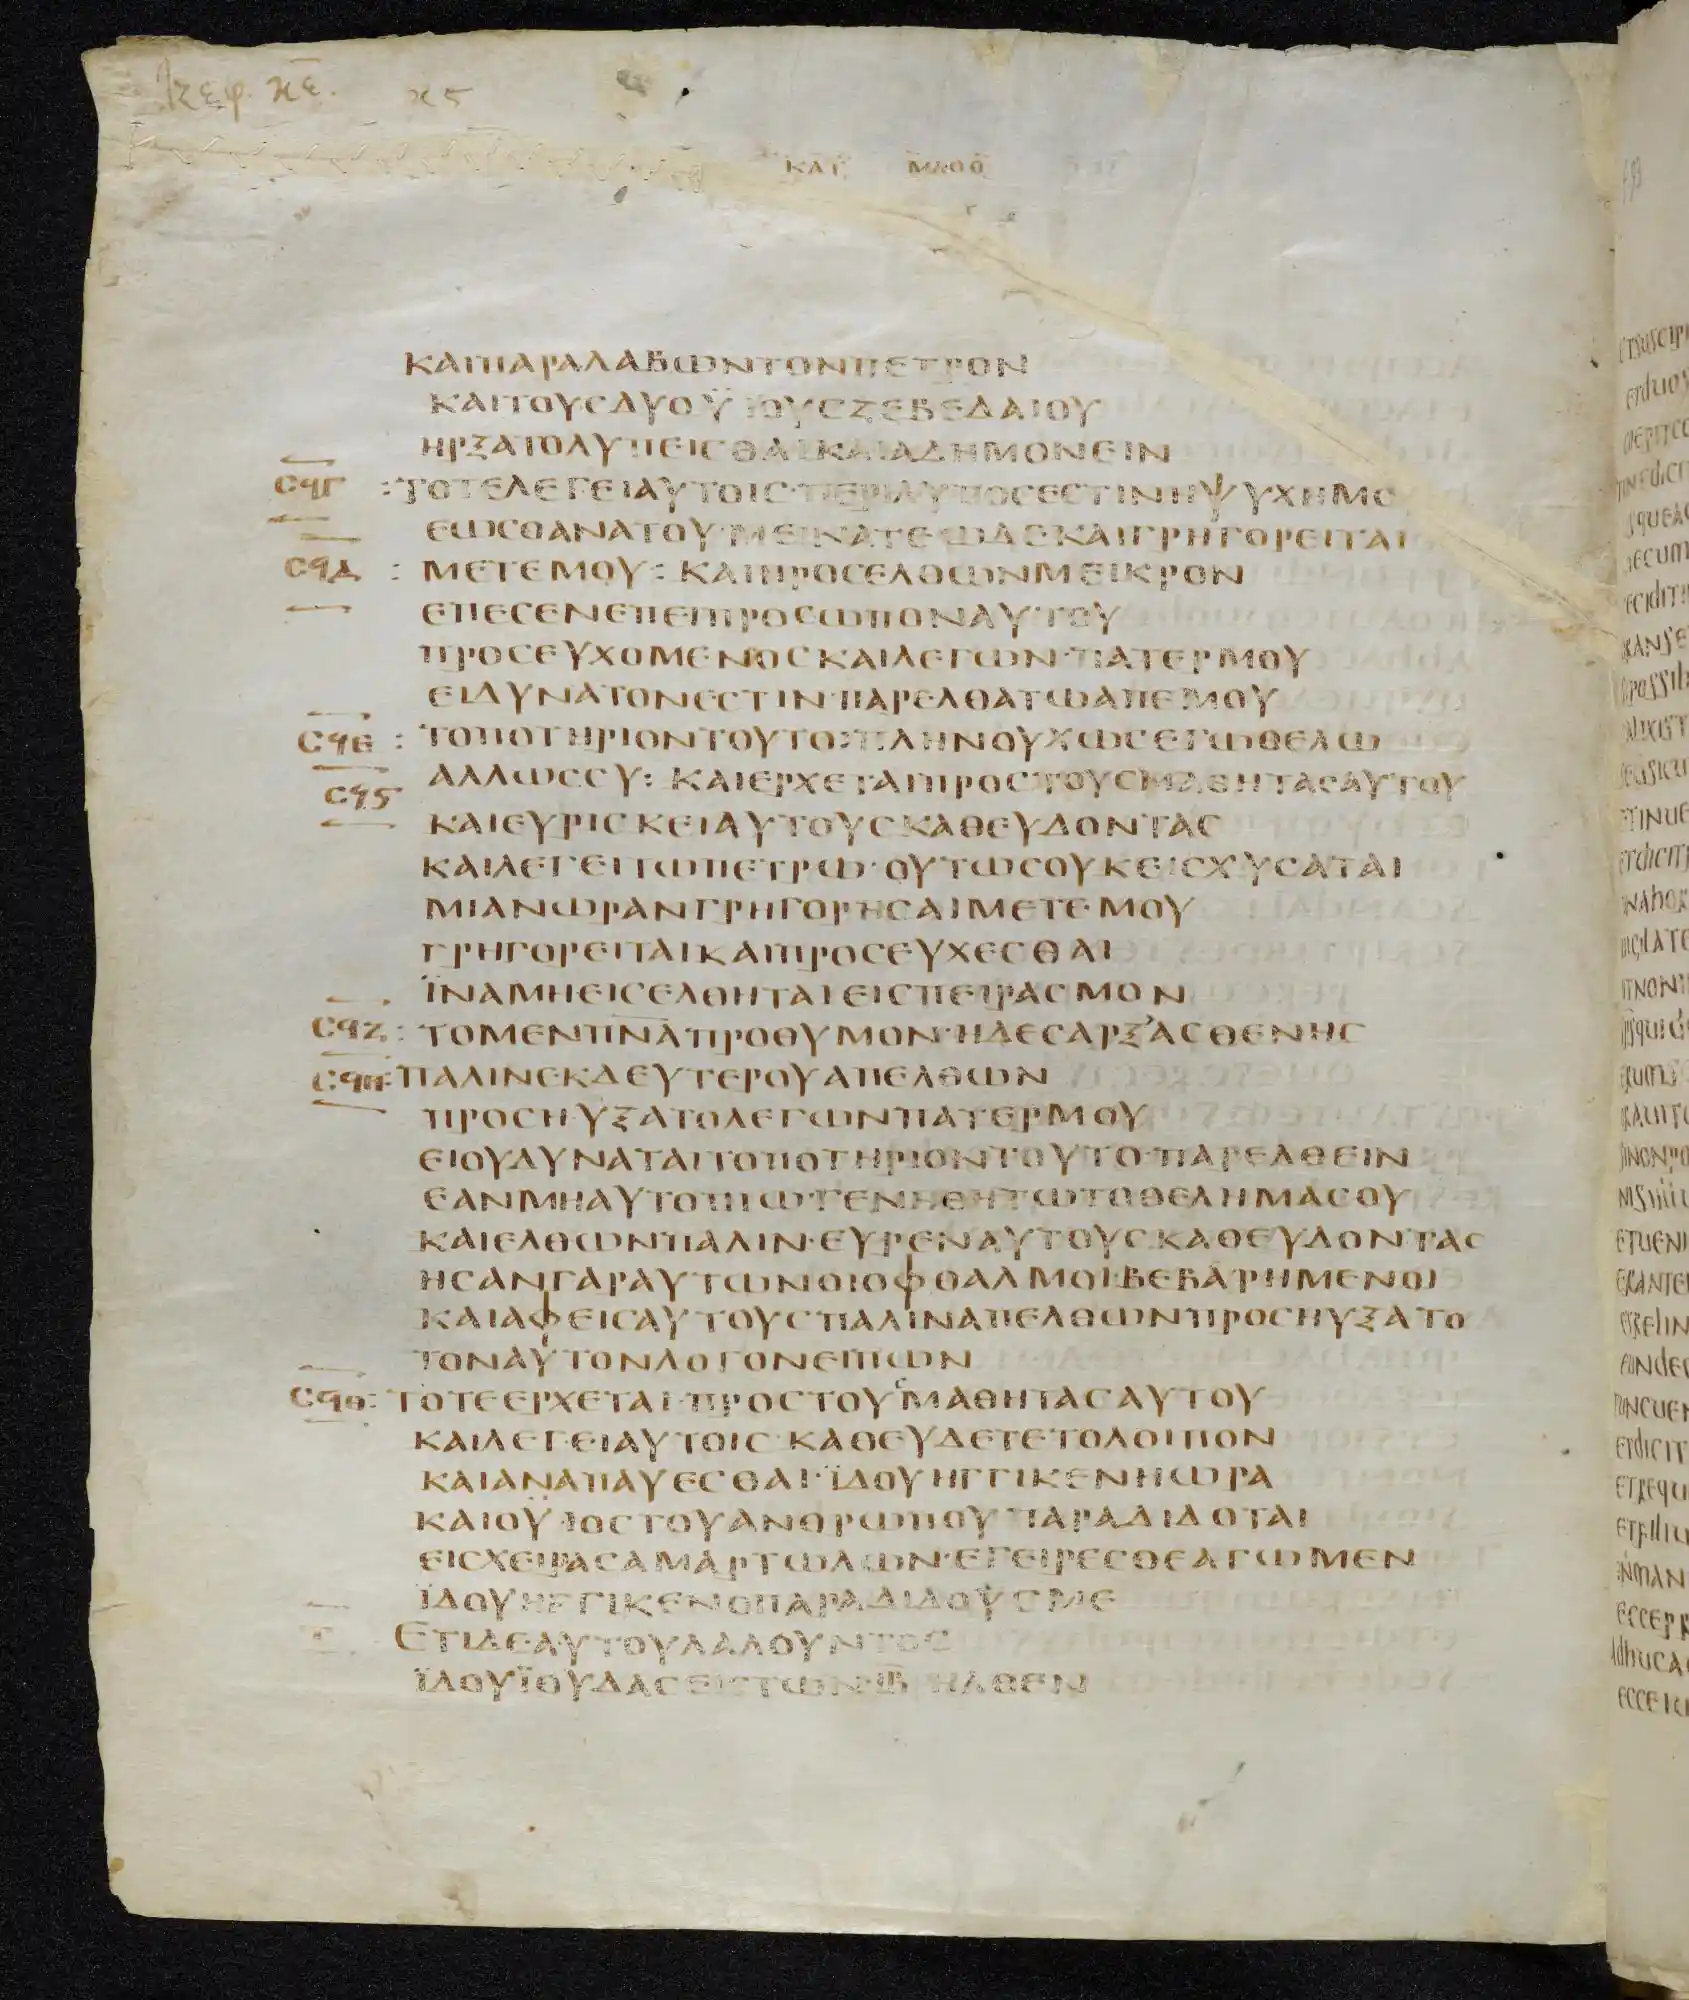 κεφ. κε. κς
ΚΑΤ ΜΑΘΘ
ΚΑΙΠΑΡΑΛΑΒΩΝΤΟΝΠΕΤΡΟΝ
ΚΑΙΤΟΥСΔΥΟΫΙΟΥСΖΕΒΕΔΑΙΟΥ
ΗΡΞΑΤΟΛΥΠΕΙСΘΑΙΚΑΙΑΔΗΜΟΝΕΙΝ
СϤΓ :ΤΟΤΕΛΕΓΕΙΑΥΤΟΙС·ΠΕΡΙΛΥΠΟСΕСΤΙΝΗΨΥΧΗΜΟ
ΕΩСΘΑΝΑΤΟΥ·ΜΕΙΝΑΤΕΩΔΕΚΑΙΓΡΗΓΟΡΕΙΤΑΙ
СϤΔ : ΜΕΤΕΜΟΥ: ΚΑΙΠΡΟСΕΛΘΩΝΜΕΙΚΡΟΝ
ΕΠΕСΕΝΕΠΕΙΠΡΟСΩΠΟΝΑΥΤΟΥ
ΠΡΟСΕΥΧΟΜΕΝΟСΚΑΙΛΕΓΩΝ·ΠΑΤΕΡΜΟΥ
ΕΙΔΥΝΑΤΟΝΕСΤΙΝ·ΠΑΡΕΛΘΑΤΩΑΠΕΜΟΥ
СϤΕ : ΤΟΠΟΤΗΡΙΟΝΤΟΥΤΟ:ΠΛΗΝΟΥΧΩСΕΓΩΘΕΛΩ
СϤϚ ΑΛΛΩССΥ: ΚΑΙΕΡΧΕΤΑΙΠΡΟСΤΟΥСΜΑΘΗΤΑСΑΥΤΟΥ
ΚΑΙΕΥΡΙСΚΕΙΑΥΤΟΥСΚΑΘΕΥΔΟΝΤΑС
ΚΑΙΛΕΓΕΙΤΩΠΕΤΡΩ·ΟΥΤΩСΟΥΚΕΙСΧΥСΑΤΑΙ
ΜΙΑΝΩΡΑΝΓΡΗΓΟΡΗСΑΙΜΕΤΕΜΟΥ
ΓΡΗΓΟΡΕΙΤΑΙΚΑΙΠΡΟСΕΥΧΕСΘΑΙ
ΪΝΑΜΗΕΙСΕΛΘΗΤΑΙΕΙСΠΕΙΡΑСΜΟΝ
СϤΖ : ΤΟΜΕΝΠΝΑ·ΠΡΟΘΥΜΟΝ·ΗΔΕСΑΡΞ᾽ΑСΘΕΝΗС
СϤΗ :ΠΑΛΙΝΕΚΔΕΥΤΕΡΟΥΑΠΕΛΘΩΝ
ΠΡΟСΗΥΞΑΤΟΛΕΓΩΝΠΑΤΕΡΜΟΥ
ΕΙΟΥΔΥΝΑΤΑΙΤΟΠΟΤΗΡΙΟΝΤΟΥΤΟ·ΠΑΡΕΛΘΕΙΝ
ΕΑΝΜΗΑΥΤΟΠΙΩ·ΓΕΝΗΘΗΤΩΤΟΘΕΛΗΜΑСΟΥ
ΚΑΙΕΛΘΩΝΠΑΛΙΝ·ΕΥΡΕΝΑΥΤΟΥС·ΚΑΘΕΥΔΟΝΤΑС
ΗСΑΝΓΑΡΑΥΤΩΝΟΙΟΦΘΑΛΜΟΙ·ΒΕΒΑΡΗΜΕΝΟΙ
ΚΑΙΑΦΕΙСΑΥΤΟΥСΠΑΛΙΝΑΠΕΛΘΩΝΠΡΟСΗΥΞΑΤΟ
ΤΟΝΑΥΤΟΝΛΟΓΟΝΕΙΠΩΝ
СϤΘ: ΤΟΤΕΕΡΧΕΤΑΙ·ΠΡΟСΤΟΥСΜΑΘΗΤΑСΑΥΤΟΥ
ΚΑΙΛΕΓΕΙΑΥΤΟΙС·ΚΑΘΕΥΔΕΤΕΤΟΛΟΙΠΟΝ
ΚΑΙΑΝΑΠΑΥΕСΘΑΙ·ΪΔΟΥΗΓΓΙΚΕΝΗΩΡΑ
ΚΑΙΟΫΙΟСΤΟΥΑΝΘΡΩΠΟΥΠΑΡΑΔΙΔΟΤΑΙ
ΕΙСΧΕΙΡΑСΑΜΑΡΤΩΛΩΝ·ΕΓΕΙΡΕСΘΕΑΓΩΜΕΝ
ΪΔΟΥΗΓΓΙΚΕΝΟΠΑΡΑΔΙΔΟΥСΜΕ
Τ ΕΤΙΔΕΑΥΤΟΥΛΑΛΟΥΝΤΟС
ΪΔΟΥΪΟΥΔΑСΕΙСΤΩΝ·ΙΒ·ΗΛΘΕΝ